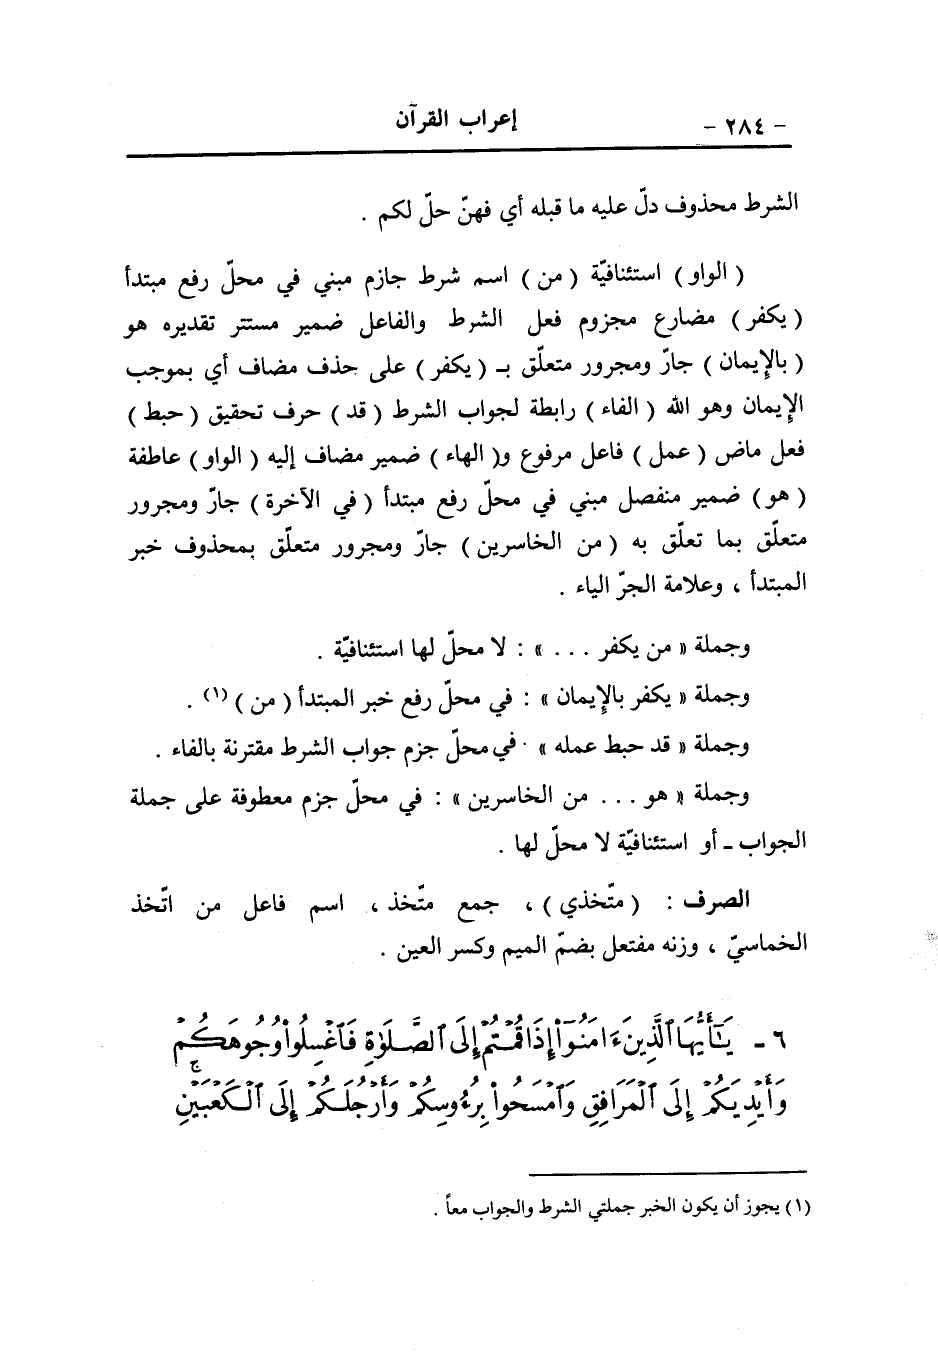 - ٢٨٤ - إعراب القرآن
الشرط محذوف دلّ عليه ما قبله أي فهنّ حلّ لكم .
( الواو ) استئنافيّة ( من ) اسم شرط جازم مبني في محلّ رفع مبتدأ
( يكفر ) مضارع مجزوم فعل الشرط والفاعل ضمير مستتر تقديره هو
( بالإيمان ) جارّ ومجرور متعلّق بـ ( يكفر ) على حذف مضاف أي بموجب
الإيمان وهو الله ( الفاء ) رابطة لجواب الشرط ( قد ) حرف تحقيق ( حبط )
فعل ماض ( عمل ) فاعل مرفوع و( الهاء ) ضمير مضاف إليه ( الواو ) عاطفة
( هو ) ضمير منفصل مبني في محلّ رفع مبتدأ ( في الآخرة ) جارّ ومجرور
متعلّق بما تعلّق به ( من الخاسرين ) جارّ ومجرور متعلّق بمحذوف خبر
المبتدأ ، وعلامة الجرّ الياء .
وجملة « من يكفر ... » : لا محلّ لها استئنافيّة .
وجملة « يكفر بالإيمان » : في محلّ رفع خبر المبتدأ ( من ) (١) .
وجملة « قد حبط عمله » · في محلّ جزم جواب الشرط مقترنة بالفاء .
وجملة « هو ... من الخاسرين » : في محلّ جزم معطوفة على جملة
الجواب ـ أو استئنافيّة لا محلّ لها .
الصرف : ( متّخذي ) ، جمع متّخذ ، اسم فاعل من اتّخذ
الخماسيّ ، وزنه مفتعل بضمّ الميم وكسر العين .
٦ - يَـٰٓأَيُّهَا ٱلَّذِينَ ءَامَنُوٓا۟ إِذَا قُمْتُمْ إِلَى ٱلصَّلَوٰةِ فَٱغْسِلُوا۟ وُجُوهَكُمْ
وَأَيْدِيَكُمْ إِلَى ٱلْمَرَافِقِ وَٱمْسَحُوا۟ بِرُءُوسِكُمْ وَأَرْجُلَكُمْ إِلَى ٱلْكَعْبَيْنِ ۚ
(١) يجوز أن يكون الخبر جملتي الشرط والجواب معاً .